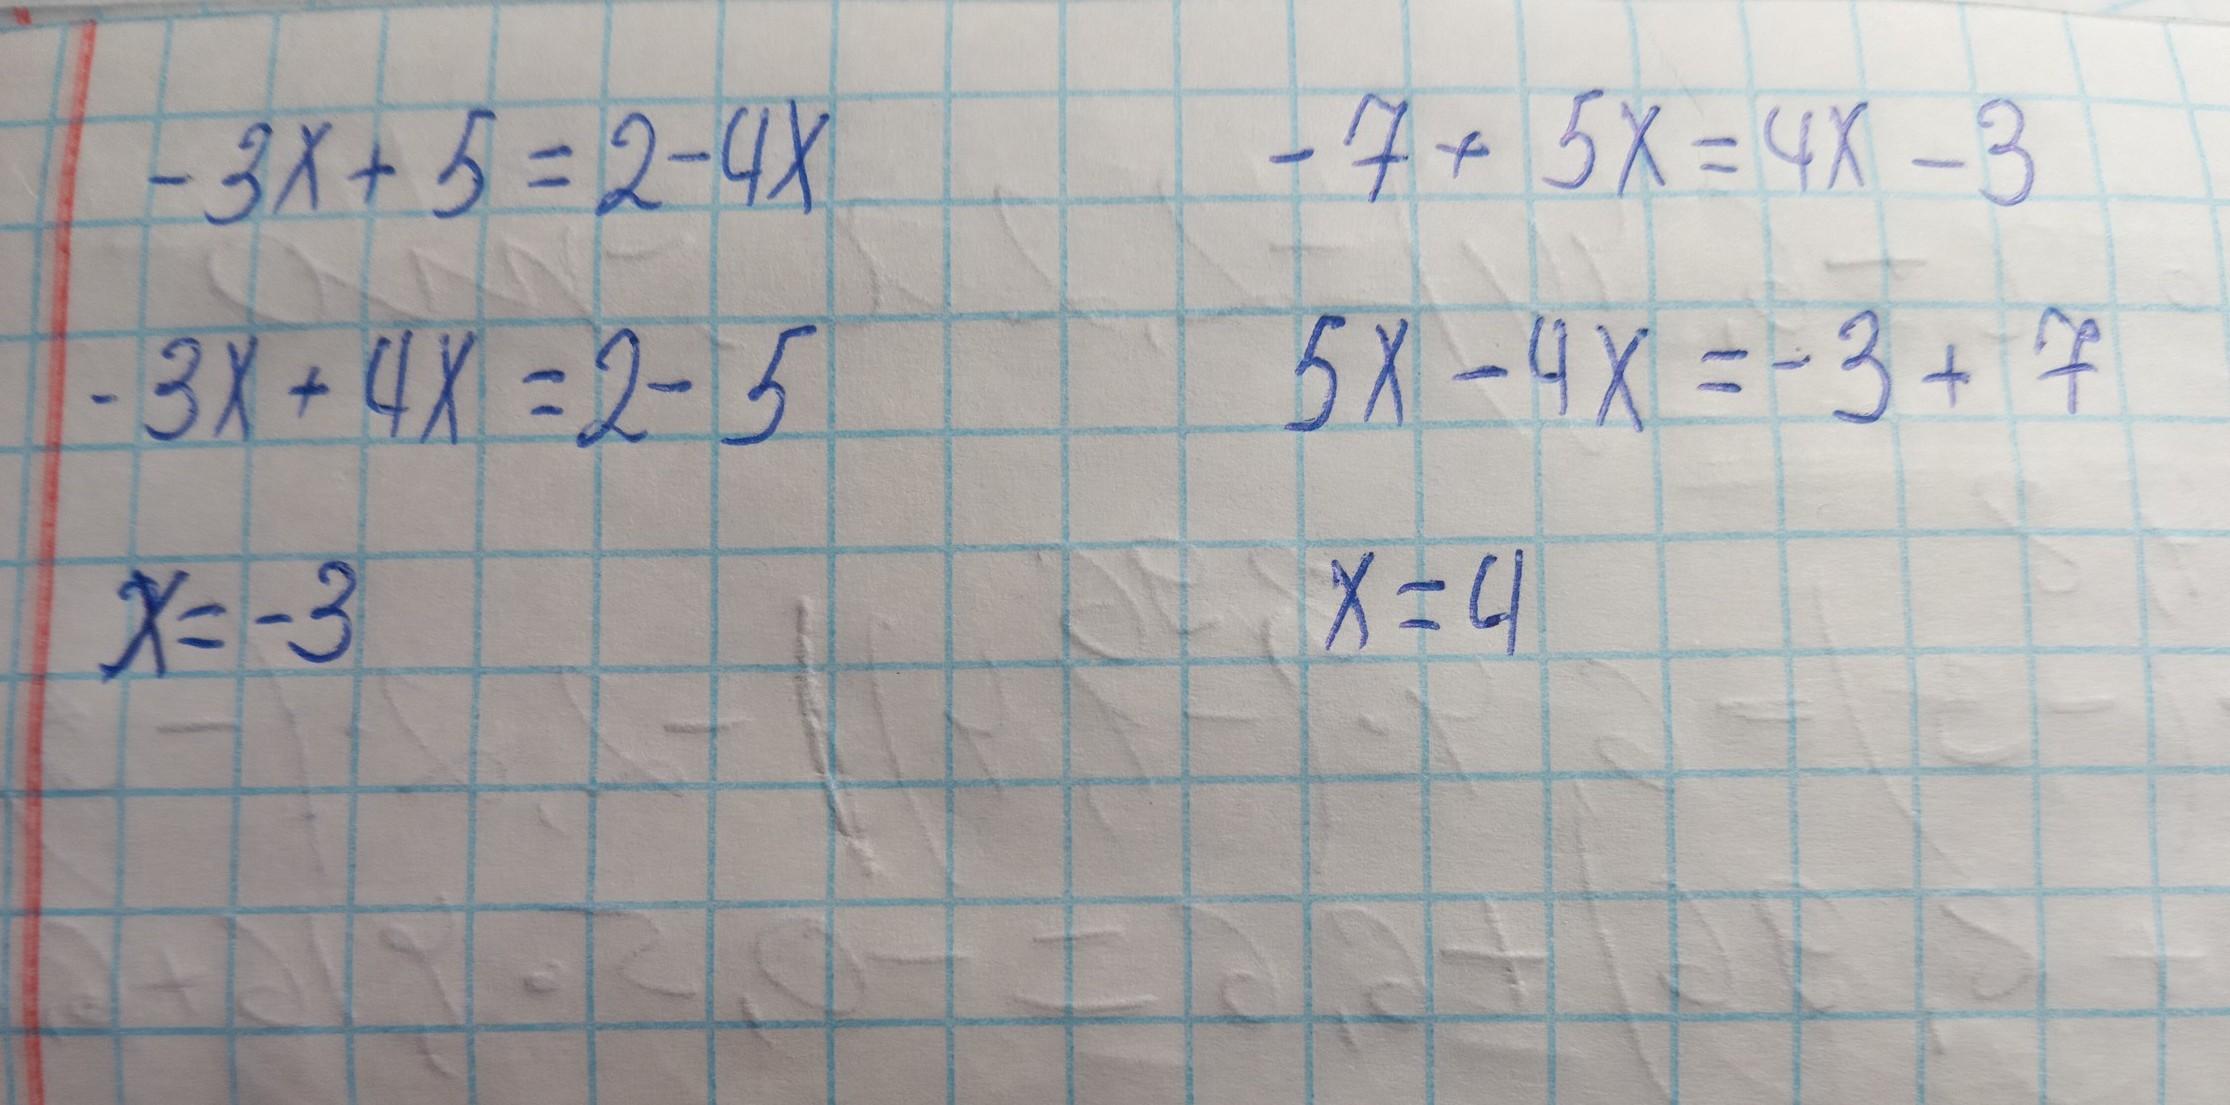 -3x+5=2-4x
-3x+4x=2-5
x=-3
-7+5x=4x-3
5x-4x=-3+7
x=4